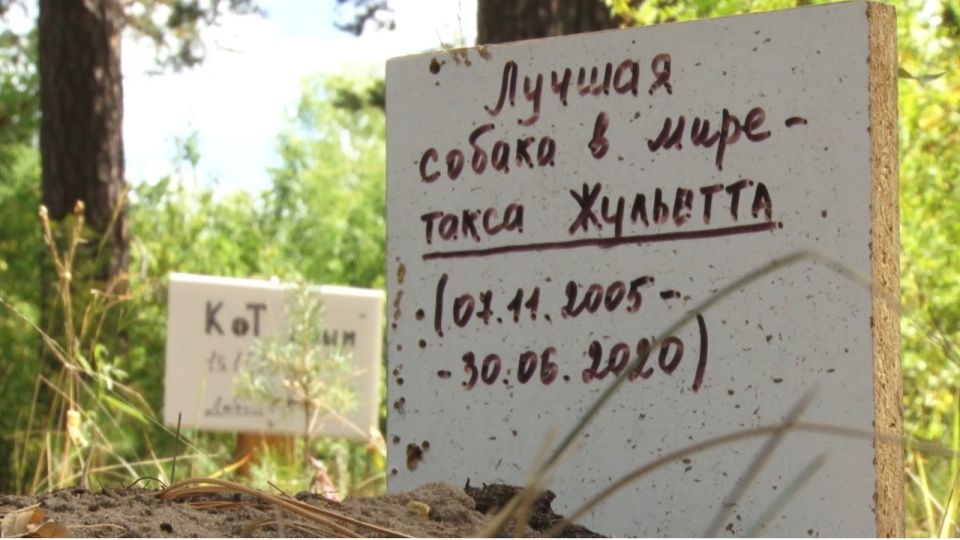 Лучшая
собака в мире-
такса Жульетта
(07.11.2005-
-30.06.2020)
Кот